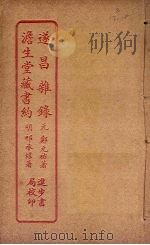 遂昌雜錄 元 鄭元祐著
澹生堂藏書約 明 祁承㸁著
進步書
局校印